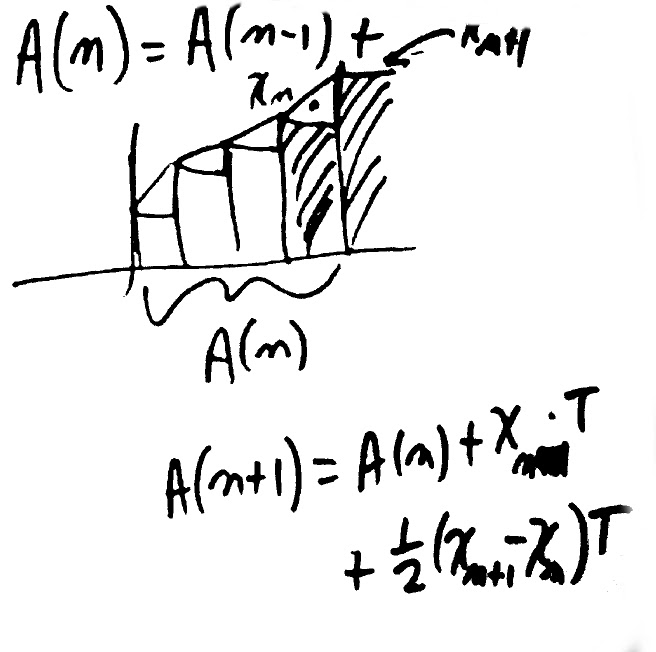 A(n) = A(n-1) +
x_{n+1}
x_n
A(n)
A(n+1) = A(n) + x_n · T
+ 1/2 (x_{n+1} - x_n) T